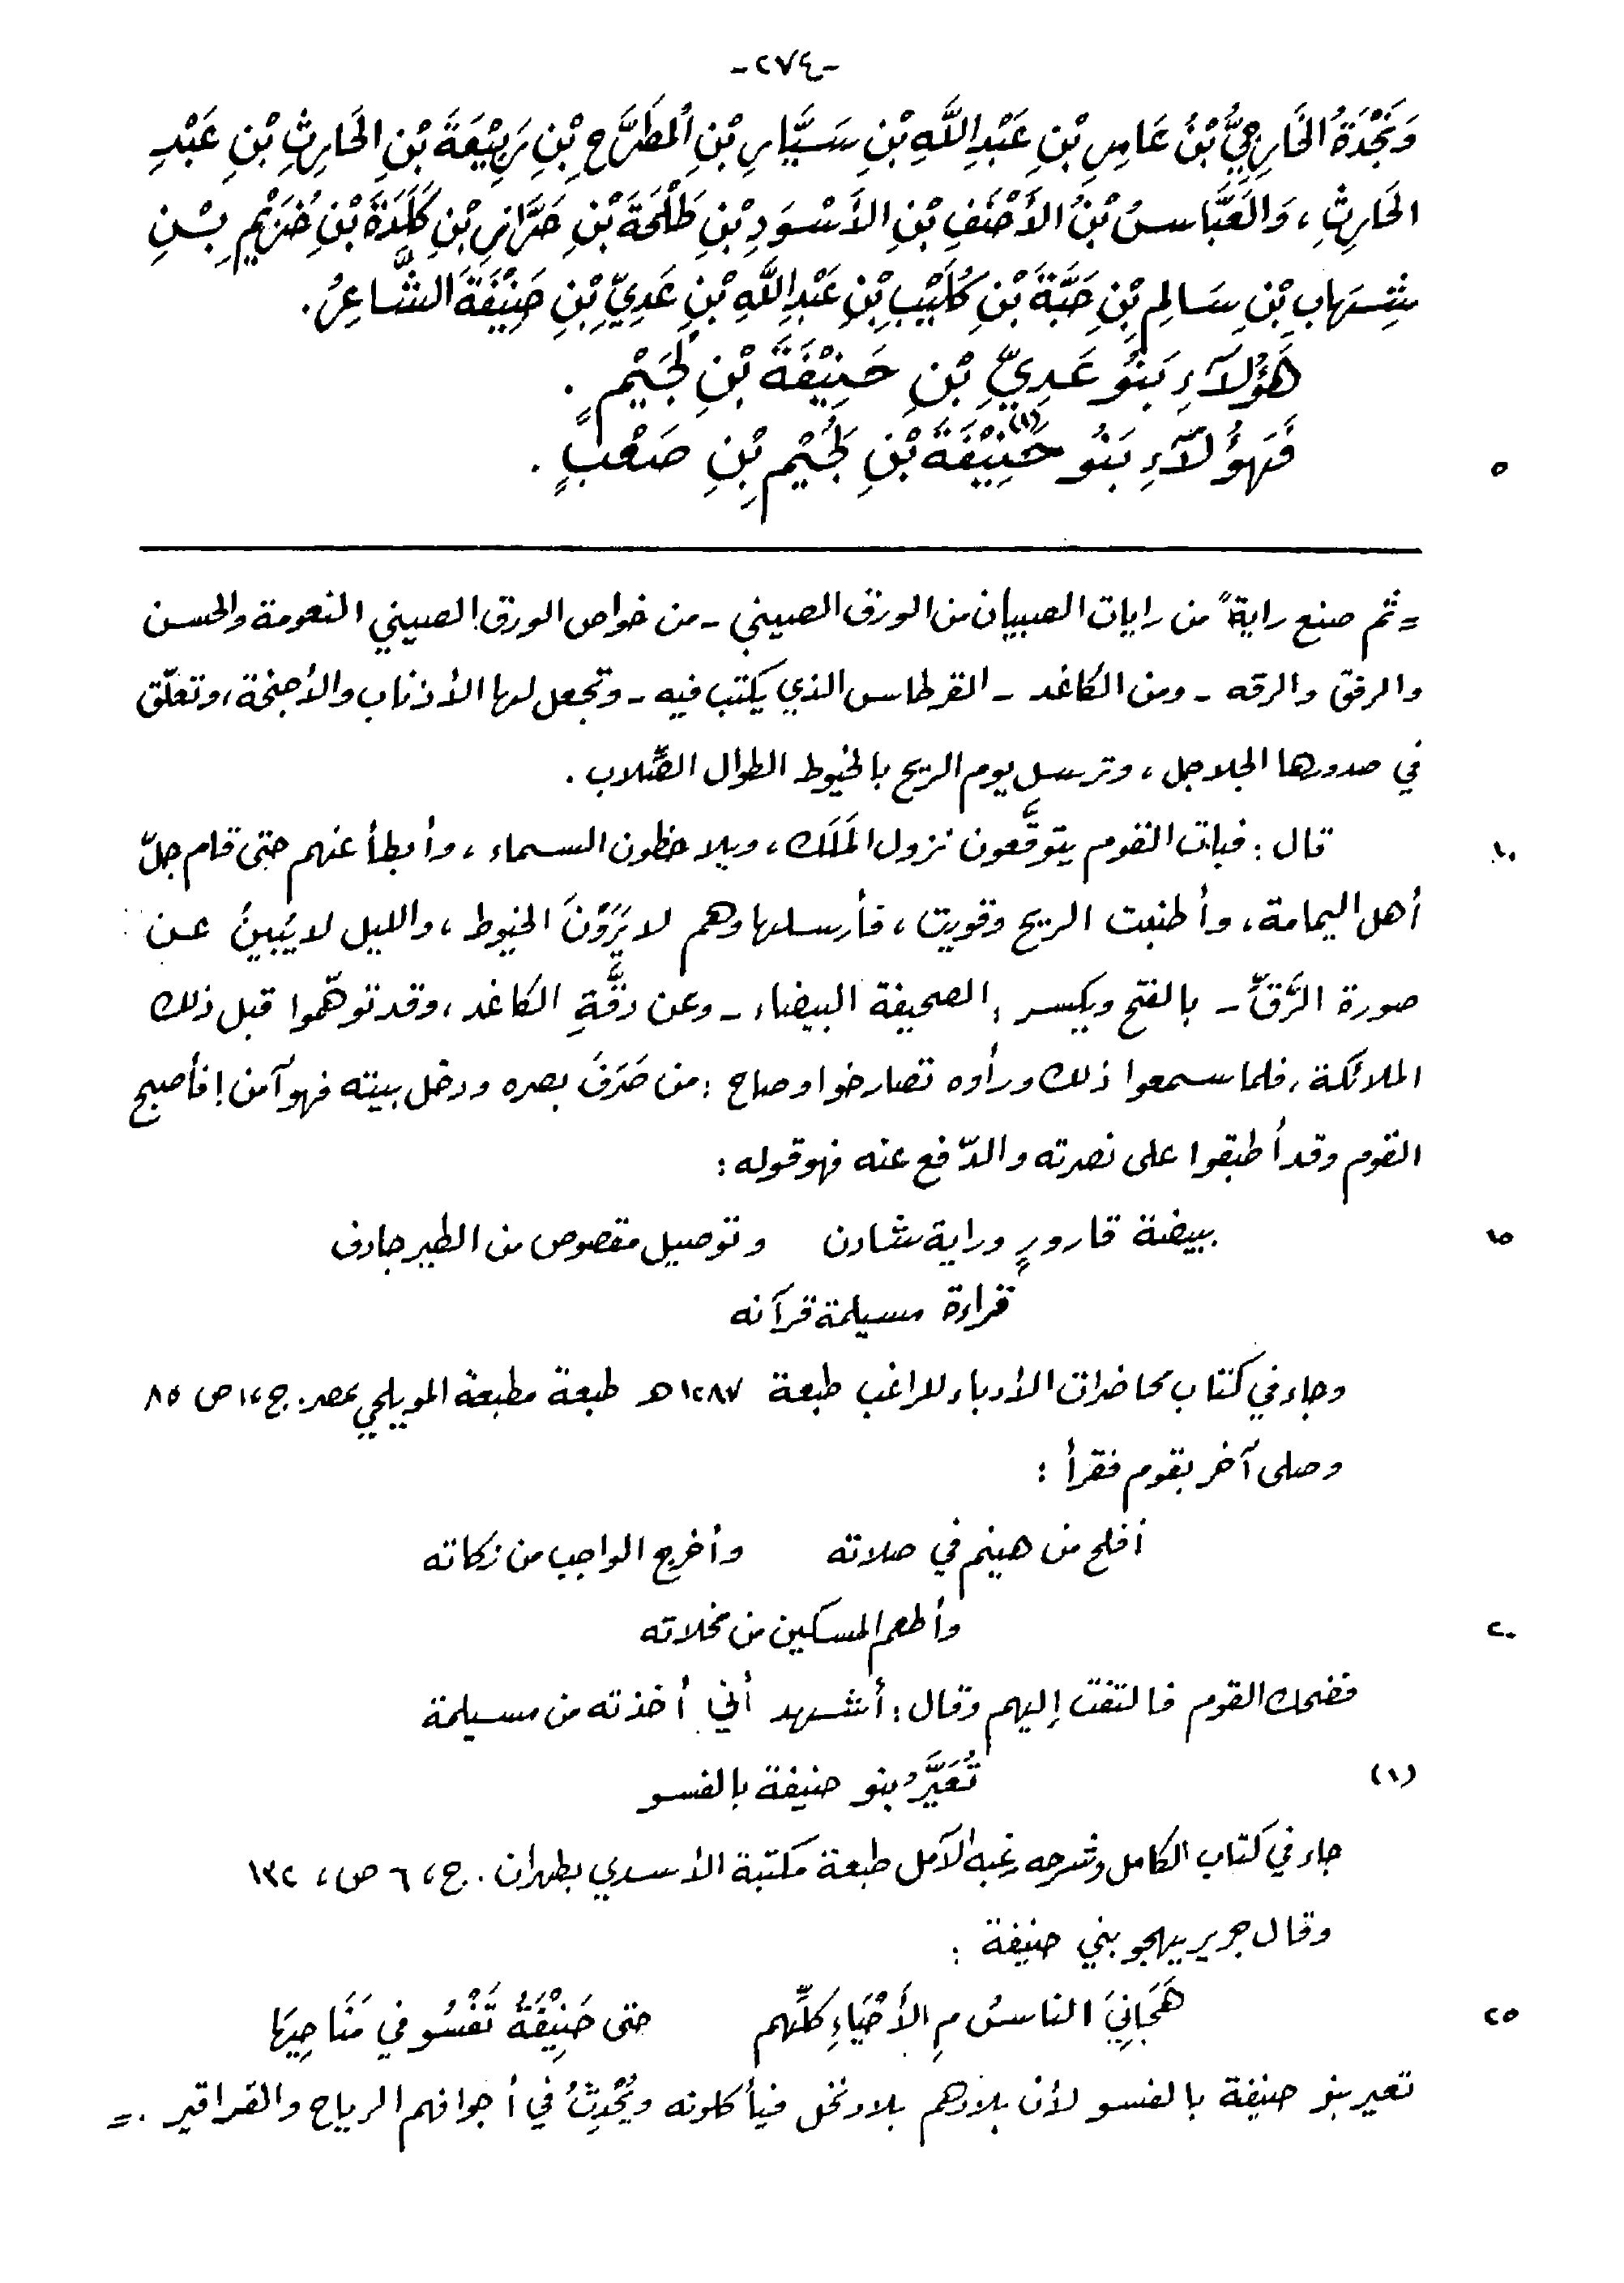 -٢٧٤-
وَنَجْدَةُ الخَارِجِيُّ بْنُ عَامِرِ بْنِ عَبْدِ اللَّهِ بْنِ سَيَّارِ بْنِ المُطَرَّحِ بْنِ رَبِيْعَةَ بْنِ الحَارِثِ بْنِ عَبْدِ
الحَارِثِ، وَالعَبَّاسُ بْنُ الأَحْنَفِ بْنِ الأَسْوَدِ بْنِ طَلْحَةَ بْنِ حَرَّانِ بْنِ كَلَدَةَ بْنِ خُزَيْمِ بْنِ
شِهَابِ بْنِ سَالِمِ بْنِ حَبَّةَ بْنِ كُلَيْبِ بْنِ عَبْدِ اللَّهِ بْنِ عَدِيِّ بْنِ حَنِيْفَةَ الشَّاعِرُ.
هَؤُلَآءِ بَنُو عَدِيِّ بْنِ حَنِيْفَةَ بْنِ لُجَيْمٍ.
فَهَؤُلَآءِ بَنُو حَنِيْفَةَ(١) بْنِ لُجَيْمِ بْنِ صَعْبٍ. ٥
= ثم صنع رايةً من رايات الصبيان من الورق الصيني - من خواص الورق الصيني النعومة والحسن
والرفق والرقه - ومن الكاغد - القرطاس الذي يكتب فيه - وتجعل لها الأذناب والأجنحة، وتعلّق
في صدورها الجلاجل، وترسل يوم الريح بالخيوط الطوال الصِّلاب.
قال: فبات القوم يتوقَّعون نزول المَلَك، ويلاحظون السماء، وأبطأ عنهم حتى قام جلّ ١٠
أهل اليمامة، وأطنبت الريح وقويت، فأرسلها وهم لا يَرَوْنَ الخيوط، والليل لا يُبينُ عن
صورة الرَّقِّ - بالفتح ويكسر: الصحيفة البيضاء - وعن دقَّةِ الكاغد، وقد توهّموا قبل ذلك
الملائكة، فلما سمعوا ذلك ورأوه تصارخوا وصاح: من صَرَفَ بصره ودخل بيته فهو آمن! فأصبح
القوم وقد أطبقوا على نصرته والدّفع عنه فهو قوله:
ببيضة قارورٍ وراية شادن وتوصيل مقصوص من الطير جادف ١٥
قراءة مسيلمة قرآنه
وجاء في كتاب محاضرات الأدباء للراغب طبعة ١٢٨٧ هـ طبعة مطبعة المويلحي بمصر. ج، ١ ص ٨٥
وصلى آخر بقوم فقرأ:
أفلح من هينم في صلاته وأخرج الواجب من زكاته
وأطعم المسكين من مخلاته ٢٠
فضحك القوم فالتفت إليهم وقال: أشهد أني أخذته من مسيلمة
(١) تُعَيَّرُ بنو حنيفة بالفسو
جاء في كتاب الكامل وشرحه رغبه الآمل طبعة مكتبة الأسدي بطهران. ج، ٦ ص، ١٣٢
وقال جرير يهجو بني حنيفة:
هَجَانِيَ الناسُ مِ الأَحْيَاءِ كلِّهم حتى حَنِيْفَةُ تَفْسُو في مَنَاحِيهَا ٢٥
تعير بنو حنيفة بالفسو لأن بلادهم بلاد نخل فيأكلونه ويُحْدِثُ في أجوافهم الرياح والقراقير. =